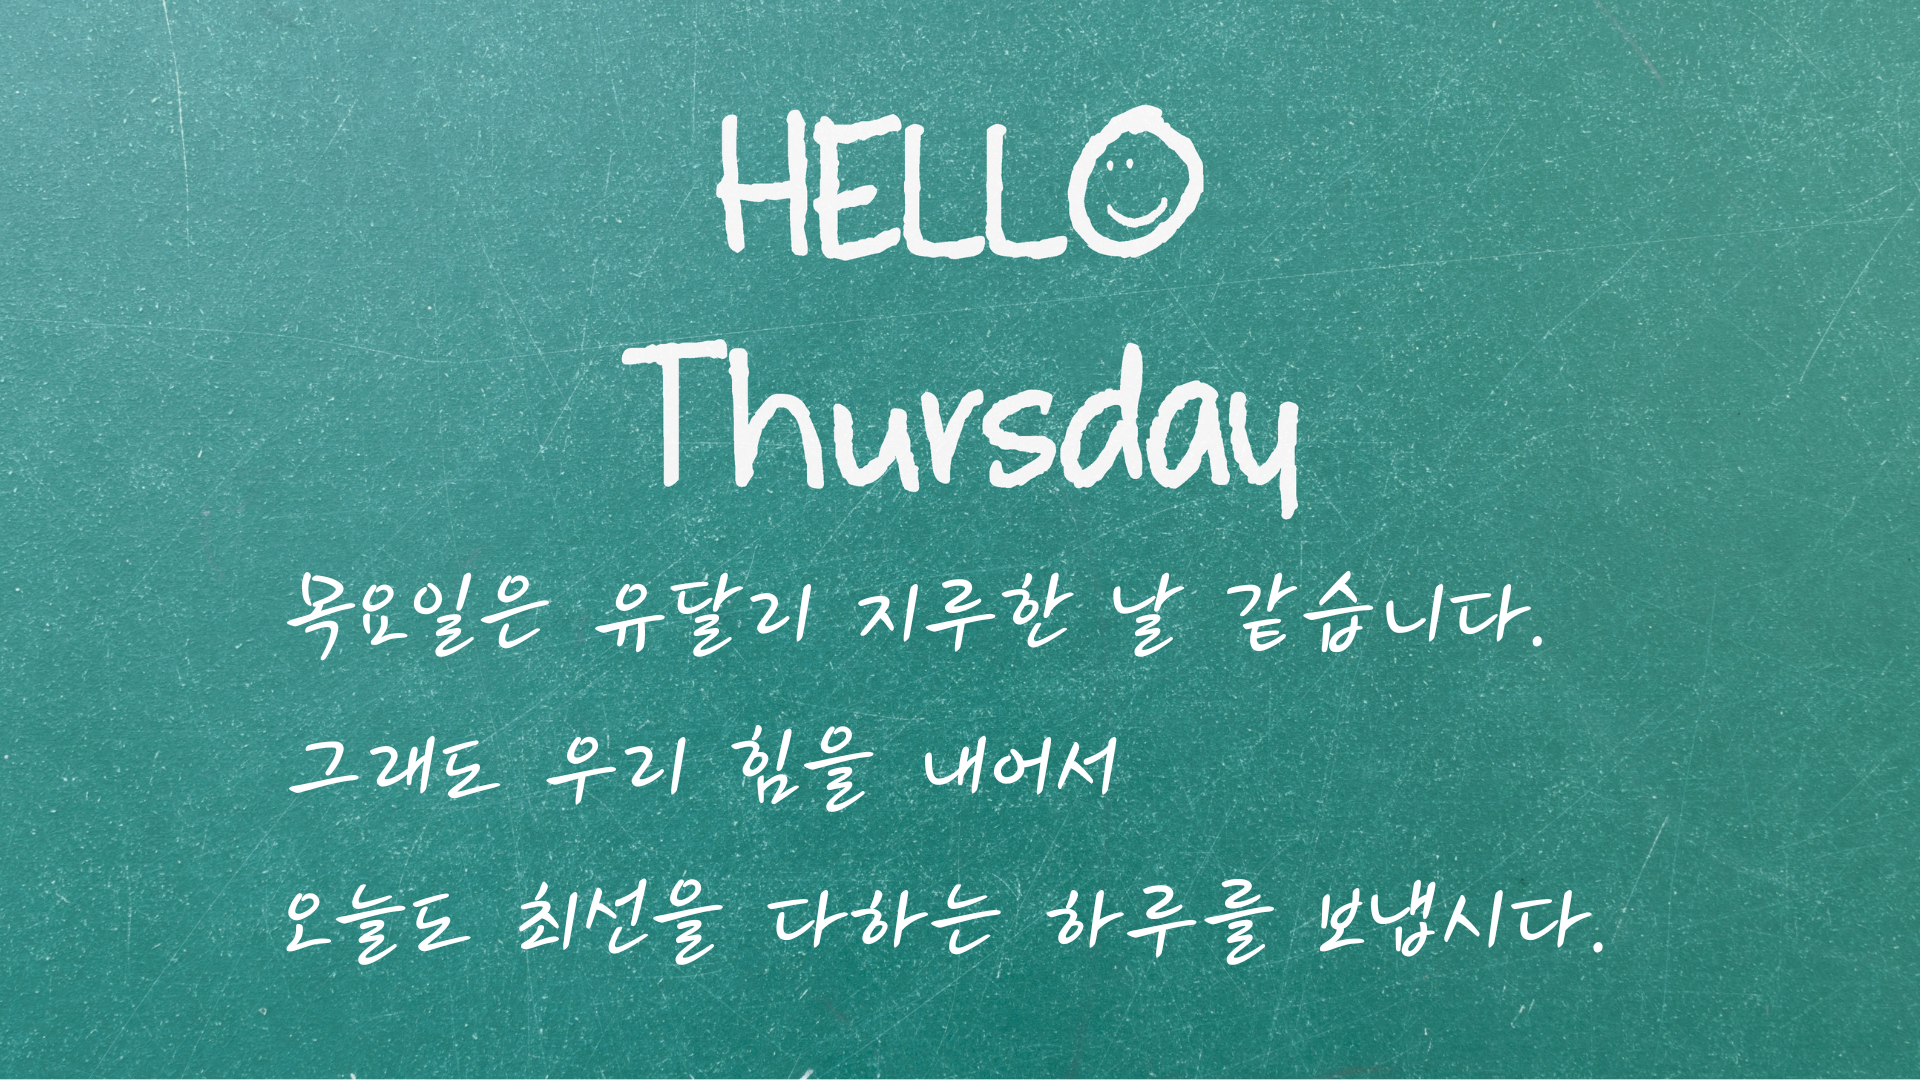 HELLO
Thursday
목요일은 유달리 지루한 날 같습니다.
그래도 우리 힘을 내어서
오늘도 최선을 다하는 하루를 보냅시다.